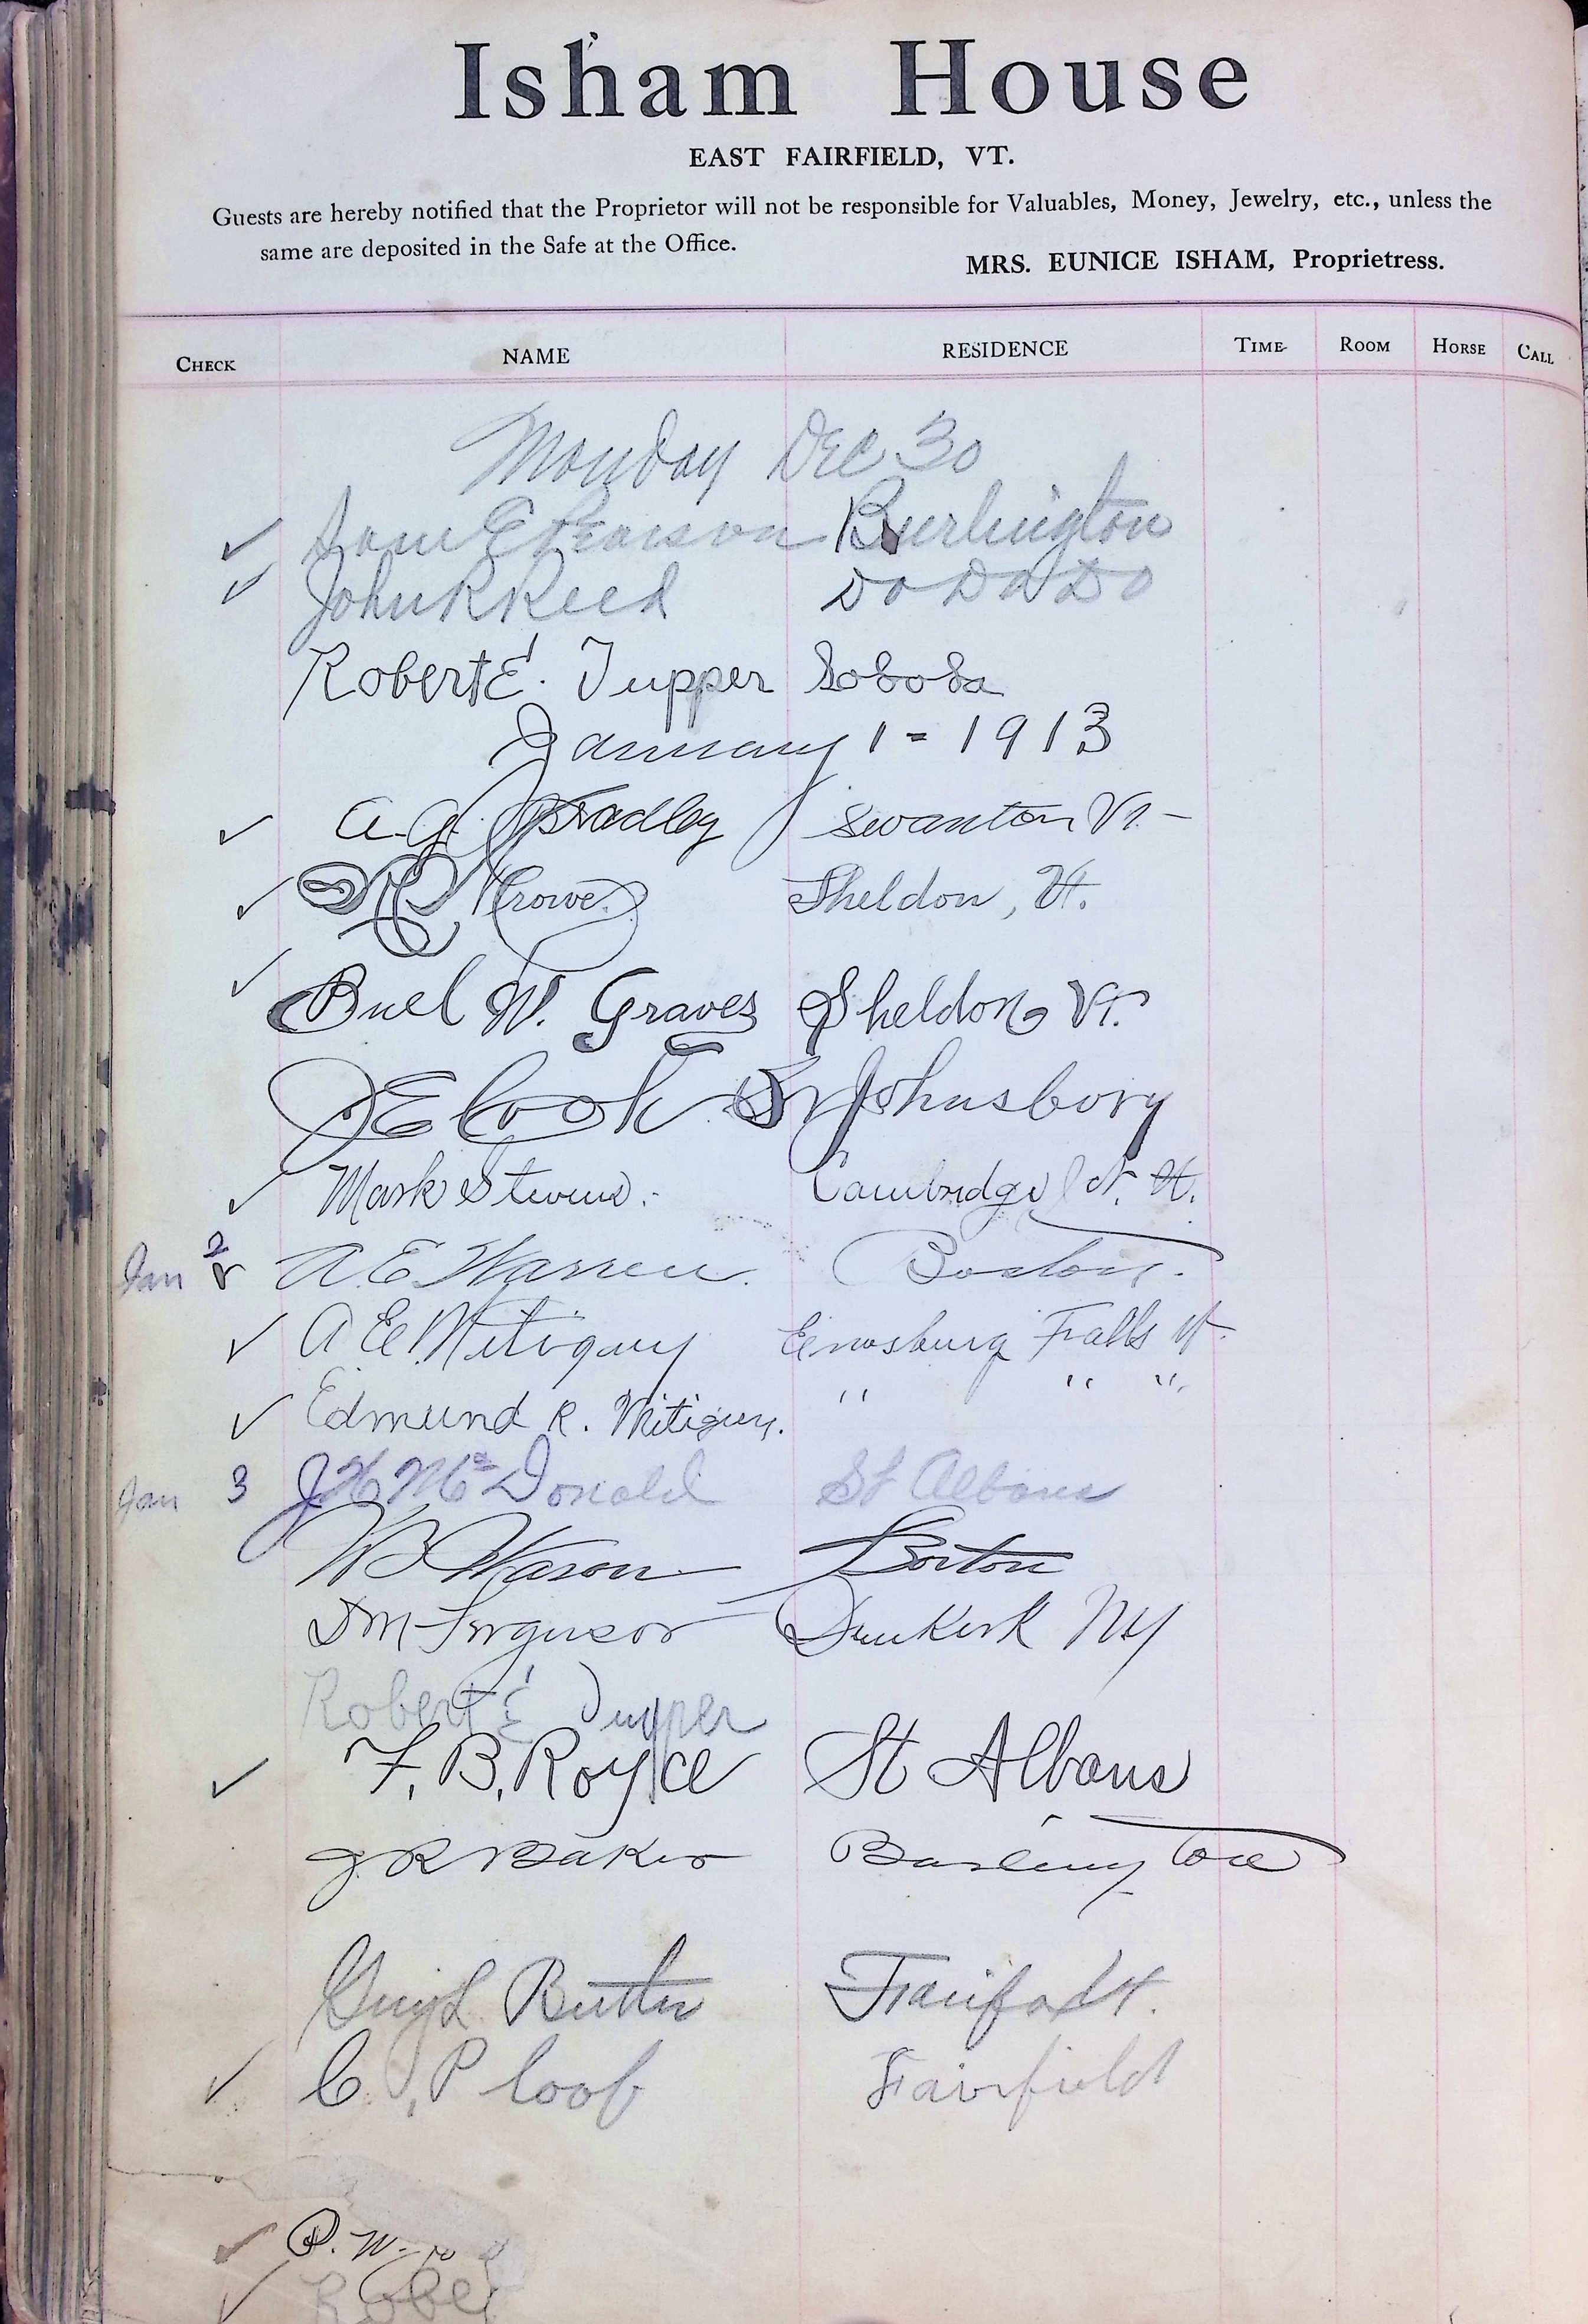 Isham House
EAST FAIRFIELD, VT.
Guests are hereby notified that the Proprietor will not be responsible for Valuables, Money, Jewelry, etc., unless the
same are deposited in the Safe at the Office.
MRS. EUNICE ISHAM, Proprietress.
CHECK NAME RESIDENCE TIME ROOM HORSE CALL
Monday Dec 30
Sam E Pearson Burlington
John R Reed Do Do Do
Robert E. Tupper
January 1 - 1913
A. G. Bradley Swanton Vt -
Crowe. Sheldon, Vt.
Buel W. Graves Sheldon Vt.
J E Cook St Johnsbory
Mark Stevens. Cambridge Jct. Vt.
Jan 2 A. E. Warren. Boston.
A E Mitiguy Enosburg Falls Vt.
Edmund R. Mitiguy. " " "
Jan 3 J H McDonald St Albans
W B Wason Boston
D M Ferguson Dunkirk NY
Robert E Tupper
F. B. Royce St Albans
J R Baker Burlington
Guy L Butler Fairfax Vt.
C. P loof Fairfield
P. W.
Robe